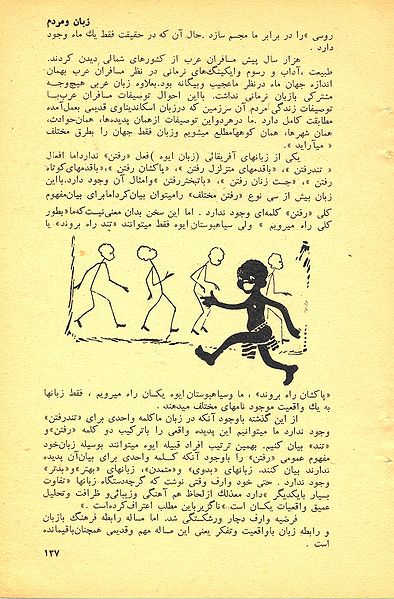 زبان ومردم
روسی »را در برابر ما مجسم سازد .حال آن که در حقیقت فقط یك ماه وجود
دارد .
هزار سال پیش مسافران عرب از کشورهای شمالی دیدن کردند.
طبیعت ،آداب و رسوم وایکینگ‌های نرمانی در نظر مسافران عرب بهمان
اندازه جهان ماه درنظر ماعجیب وبیگانه بود.بعلاوه زبان عربی هیچ‌وجـه
مشترکی بازبان نرمانی نداشت. بااین احوال توصیفات مسافران عرب‌با
توصیفات زندگی مردم آن سرزمین که درزبان اسکاندیناوی قدیمی بعمل‌آمده
مطابقت کامل دارد .ما درهردواین توصیفات ازهمان پدیده‌ها، همان‌حوادث،
همان شهرها، همان کوهها‌مطلع میشویم وزبان فقط جهان را بطرق مختلف
« میآراید ».
یکی از زبانهای آفریقائی (زبان ایوه )فعل «رفتن» نداردا‌ما افعال
« تندرفتن »، «باقدمهای متزلزل رفتن »، «پاکشان رفتن »،«باقدمهای‌کوتاه
رفتن »، «جست زنان رفتن »، «باتبختررفتن »وامثال آن وجود دارد.بااین
زبان بیش از سی نوع «رفتن مختلف» رامیتوان بیان‌کرداما‌برای بیان‌مفهوم
کلی «رفتن» کلمه‌ای وجود ندارد . اما این سخن بدان معنی‌نیست‌که‌ما«بطور
کلی راه میرویم » ولی سیاهپوستان ایوه فقط میتوانند «تند راه بروند» یا
«پاکشان راه بروند» ، ما وسیاهپوستان ایوه یکسان راه میرویم ، فقط زبانها
به یك واقعیت موجود نامهای مختلف میدهند .
از این گذشته باوجود آنکه در زبان ماکلمه واحدی برای «تندرفتن»
وجود ندارد ما میتوانیم این پدیده واقعی را باترکیب دو کلمه «رفتن»و
«تند» بیان کنیم. بهمین ترتیب افراد قبیله ایوه میتوانند بوسیله زبان‌خود
مفهوم عمومی «رفتن» را باوجود آنکه کلـمه واحدی برای بیان‌آن پدیده
ندارند بیان کنند. زبانهای «بدوی» و«متمدن»، زبانهای «بهتر»و«بدتر»
وجود ندارد . حتی خود وارف وقتی نوشت که گرچه‌دستگاه زبانها «تفاوت
بسیار بایکدیگر »دارد معذلك ازلحاظ هم آهنگی وزیبائی‌و ظرافت وتحلیل
عمیق واقعیات یکسان است.»ناگزیر‌باین مطلب اعتراف‌کرده‌است .»
فرضیه وارف دچار ورشکستگی شد. اما مساله رابطه فرهنگ بازبان
و رابطه زبان باواقعیت وتفکر یعنی این مساله مهم وقدیمی همچنان‌باقیمانده
است .
۱۲۷